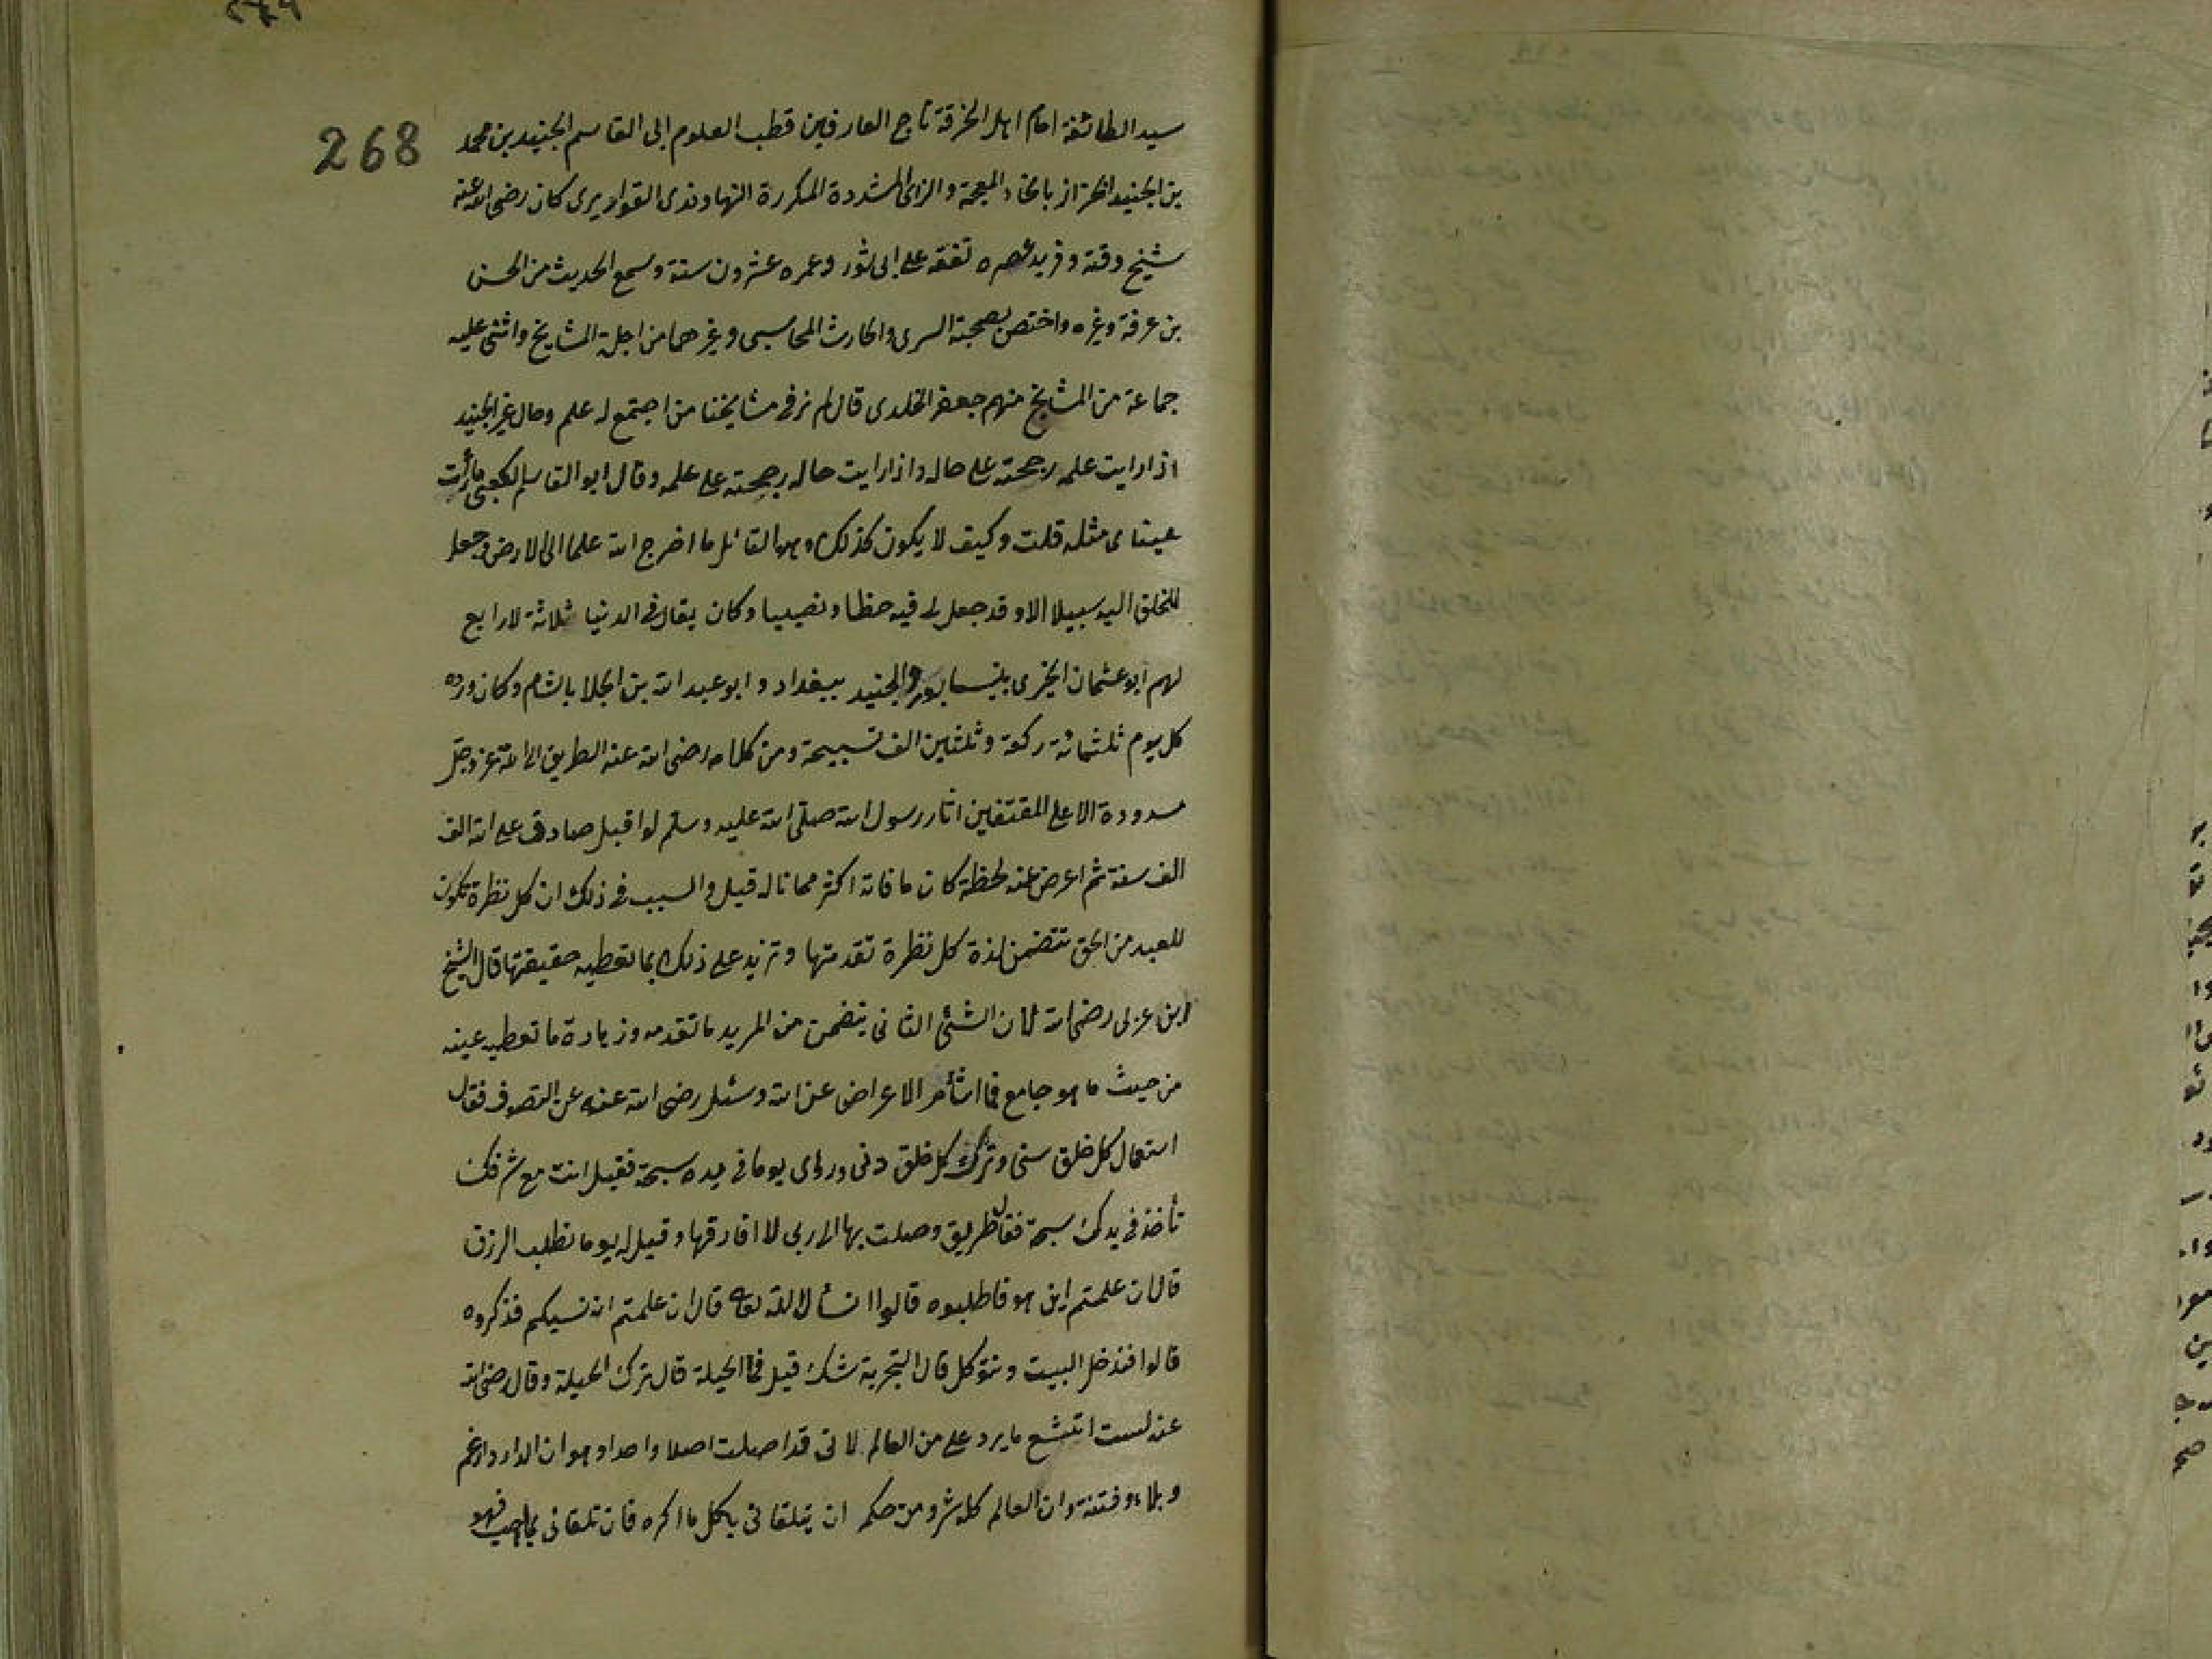 268
سيد الطائفة امام اهل الخرقة تاج العارفين قطب العلوم ابى القاسم الجنيد بن محمد
بن الجنيد الخزاز بالخاء المعجمة والزاى المشددة المكررة النهاوندى القواريرى كان رضى الله عنه
شيخ وقته وفريد عصره تفقه على ابى ثور وعمره عشرون سنة وسمع الحديث من الحسن
بن عرفة وغيره واختص بصحبة السرى والحارث المحاسبى وغيرهما من اجلة المشايخ واثنى عليه
جماعة من المشايخ منهم جعفر الخلدى قال لم نر فى مشايخنا من اجتمع له علم وحال غير الجنيد
اذا رايت علمه رجحته على حاله واذا رايت حاله رجحته على علمه وقال ابو القاسم الكعبى ما رأت
عيناى مثله قلت وكيف لا يكون كذلك وهو القائل ما اخرج الله علما الى الارض وجعل
للخلق اليه سبيلا الا وقد جعل لى فيه حظا ونصيبا وكان يقال فى الدنيا ثلاثة لا رابع
لهم ابو عثمان الحيرى بنيسابور والجنيد ببغداد وابو عبد الله بن الجلا بالشام وكان ورده
كل يوم ثلثمائة ركعة وثلثين الف تسبيحة ومن كلامه رضى الله عنه الطريق الى الله عز وجل
مسدودة الا على المقتفين اثار رسول الله صلى الله عليه وسلم لو اقبل صادق على الله الف
الف سنة ثم اعرض عنه لحظة كان ما فاته اكثر مما ناله قيل والسبب فى ذلك ان كل نظرة تكون
للعبد من الحق تتضمن لذة كل نظرة تقدمتها وتزيد على ذلك بما تعطيه حقيقتها قال الشيخ
ابن عربى رضى الله لان الشئ الثانى يتضمن من المزيد ما تقدمه وزيادة ما تعطيه عينه
من حيث ما هو جامع فما اشأم الاعراض عن الله وسئل رضى الله عنه عن التصوف فقال
استعمال كل خلق سنى وترك كل خلق دنى ورؤى يوما فى يده سبحة فقيل انت مع شرفك
تأخذ فى يدك سبحة فقال طريق وصلت بها الى ربى لا افارقها وقيل له يوما نطلب الرزق
قال ان علمتم اين هو فاطلبوه قالوا نسأل الله تعالى قال ان علمتم انه نسيكم فذكروه
قالوا فندخل البيت ونتوكل قال التجربة شك قيل فما الحيلة قال ترك الحيلة وقال رضى الله
عنه لست اتبشع ما يرد على من العالم لانى قد اصلت اصلا واحدا وهو ان الدار دار غم
وبلاء وفتنة وان العالم كله شر ومن حكمه ان يتلقانى بكل ما اكره فان تلقانى بما احب فهو